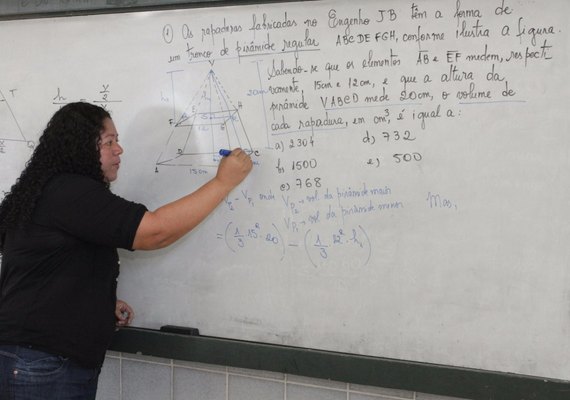 ① As rapaduras fabricadas no Engenho JB têm a forma de
um tronco de pirâmide regular ABCDEFGH, conforme ilustra a figura.
Sabendo-se que os elementos AB e EF medem, respecti
vamente, 15cm e 12cm, e que a altura da
pirâmide VABCD mede 20cm, o volume de
cada rapadura, em cm³, é igual a:
a) 2304
d) 732
b) 1500
e) 500
c) 768
V
20cm
h₁
E
H
F
G
D
C
A
15cm
V_P₂ - V_P₁ onde V_P₂ → vol da pirâmide maior
V_P₁ → vol da pirâmide menor
Mas,
= (1/3 15² · 20) - (1/3 12² · h₁)
T
h
=
V
3